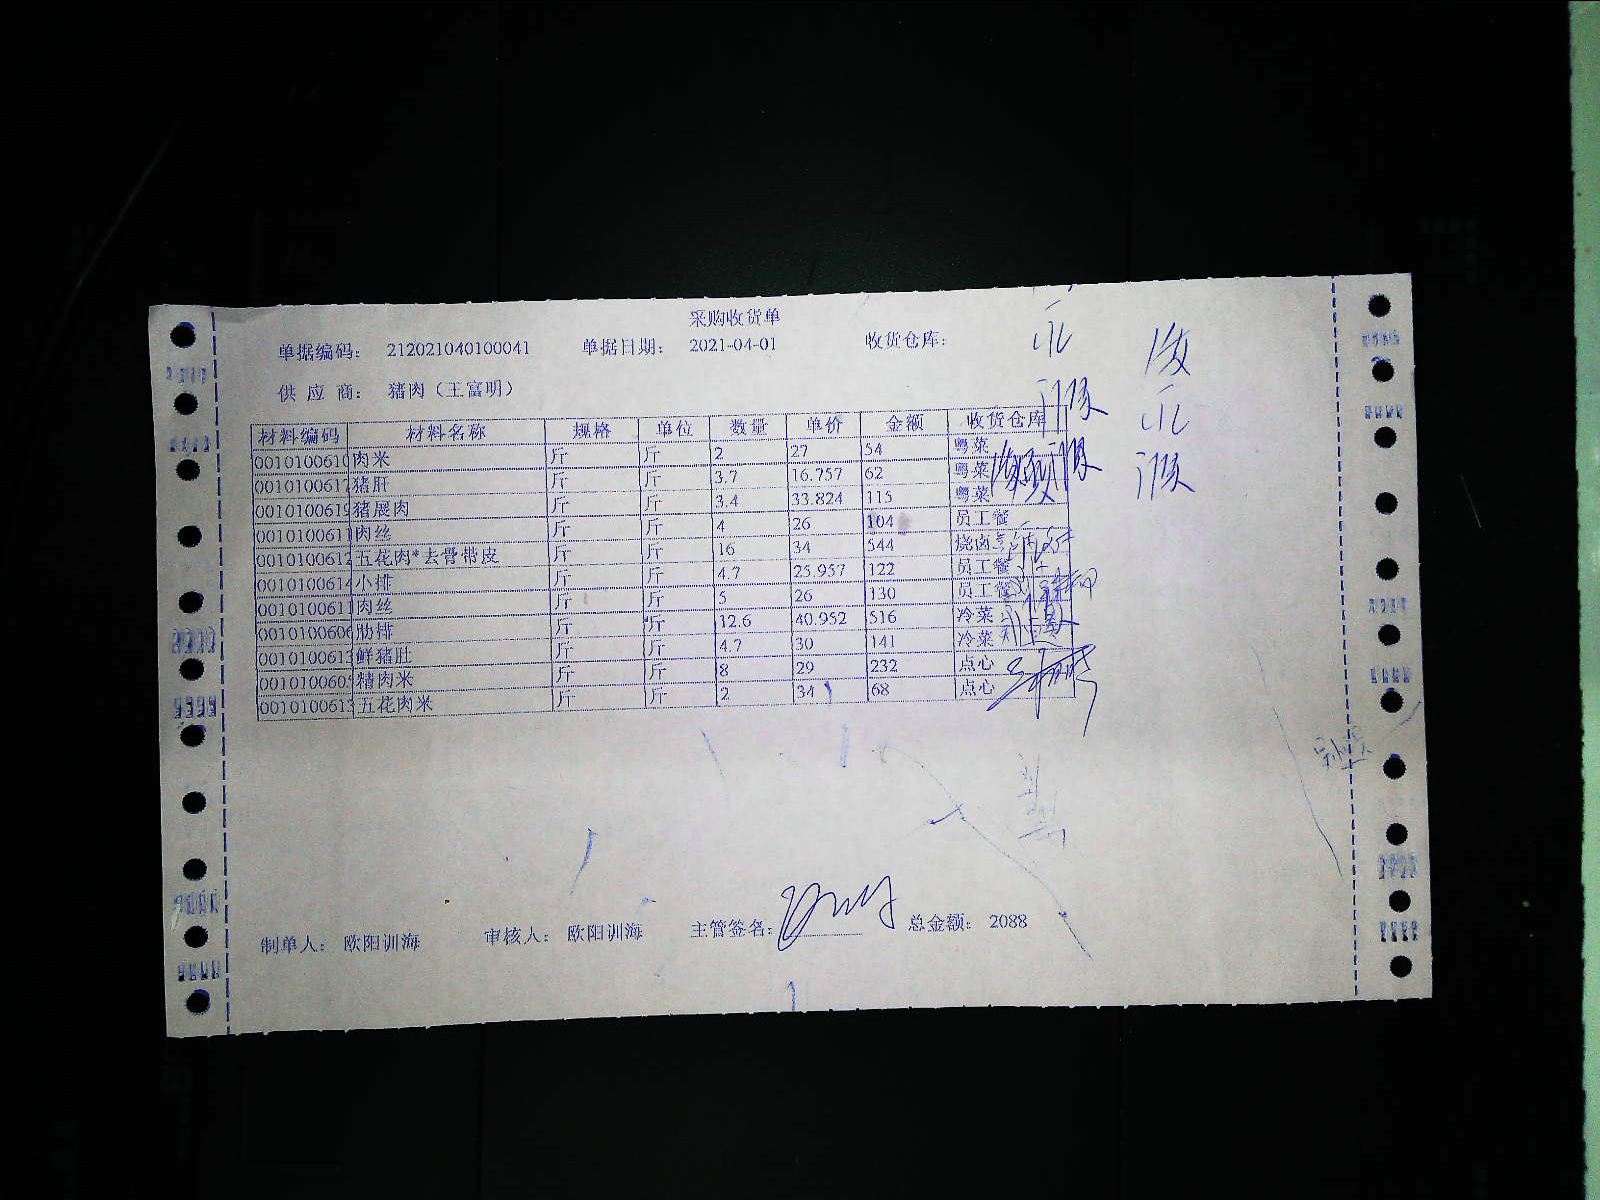 采购收货单
单据编码： 212021040100041 单据日期： 2021-04-01 收货仓库：
供 应 商： 猪肉（王富明）
材料编码 材料名称 规格 单位 数量 单价 金额 收货仓库
0010100610 肉米 斤 斤 2 27 54 粤菜
0010100617 猪肝 斤 斤 3.7 16.757 62 粤菜
0010100619 猪展肉 斤 斤 3.4 33.824 115 粤菜
0010100611 肉丝 斤 斤 4 26 104 员工餐
0010100612 五花肉*去骨带皮 斤 斤 16 34 544 烧卤
0010100614 小排 斤 斤 4.7 25.957 122 员工餐
0010100611 肉丝 斤 斤 5 26 130 员工餐
0010100606 肋排 斤 斤 12.6 40.952 516 冷菜
0010100613 鲜猪肚 斤 斤 4.7 30 141 冷菜
001010060 精肉米 斤 斤 8 29 232 点心
0010100613 五花肉米 斤 斤 2 34 68 点心
制单人： 欧阳训海 审核人： 欧阳训海 主管签名： 总金额： 2088